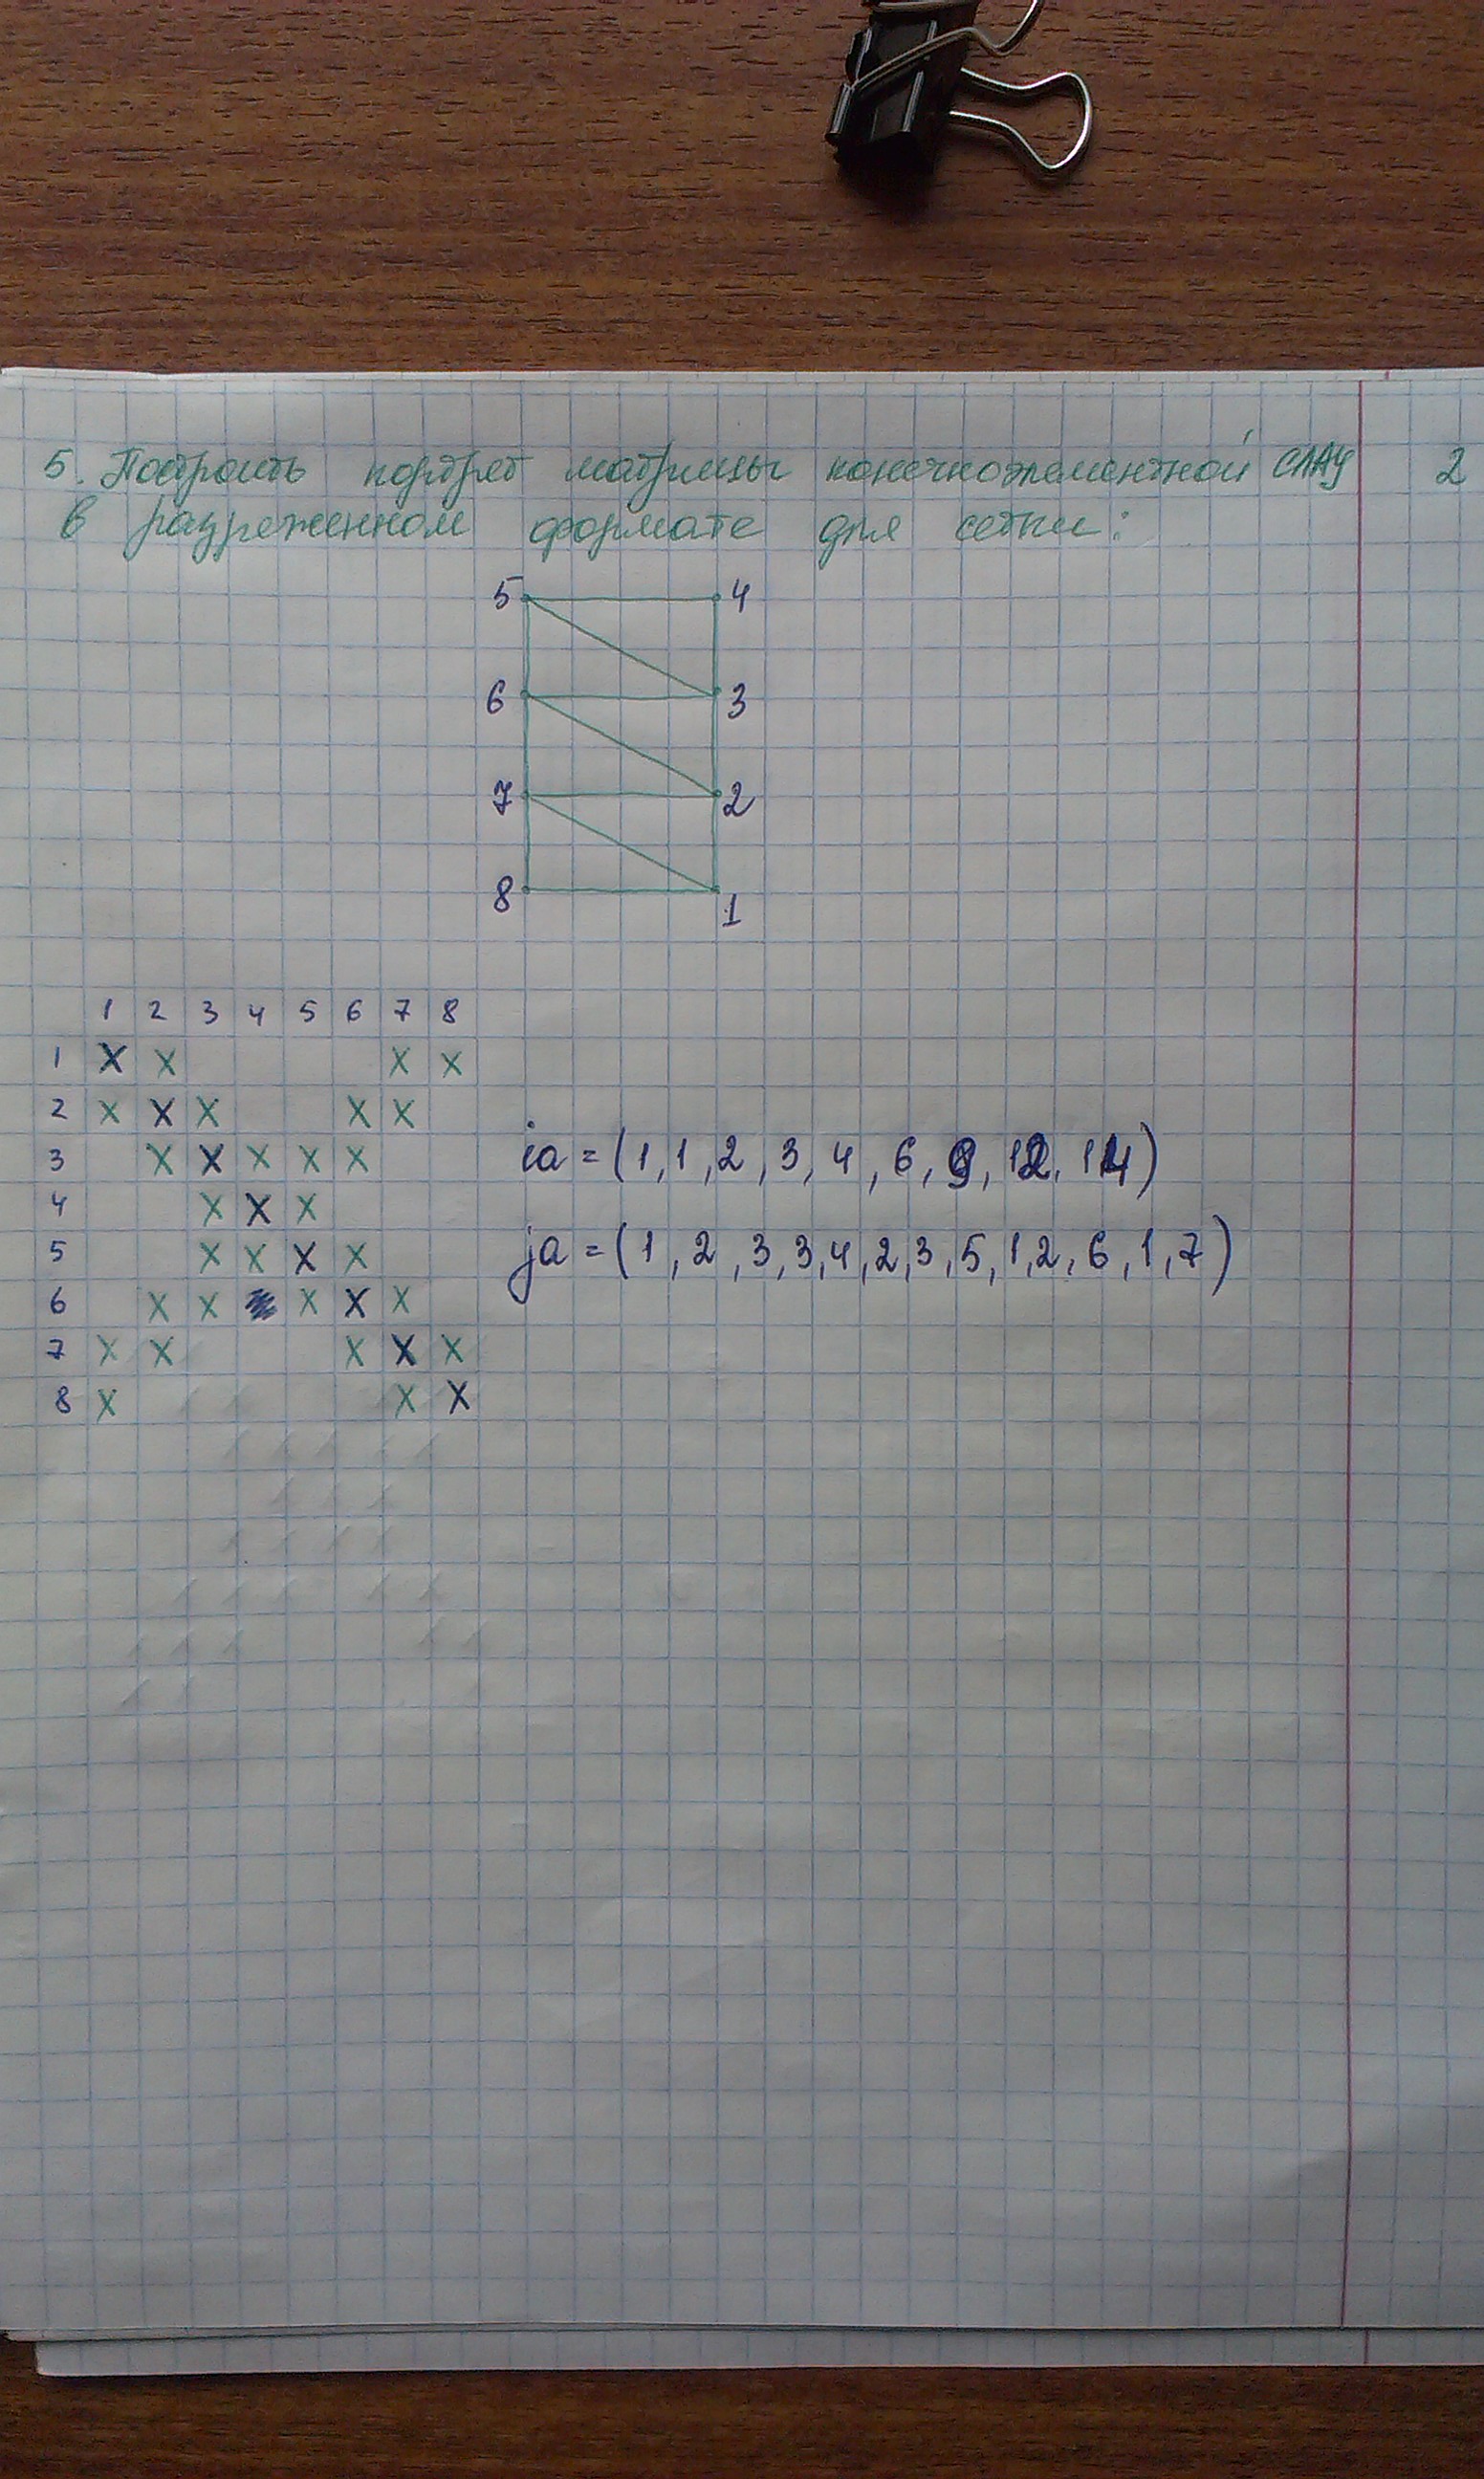 5. Построить портрет матрицы конечноэлементной СЛАУ 2
в разреженном формате для сетки:
5 4
6 3
7 2
8 1
1 2 3 4 5 6 7 8
1 X X X X
2 X X X X X
3 X X X X X
4 X X X
5 X X X X
6 X X X X X
7 X X X X X
8 X X X
ia = (1, 1, 2, 3, 4, 6, 9, 12, 14)
ja = (1, 2, 3, 3, 4, 2, 3, 5, 1, 2, 6, 1, 7)